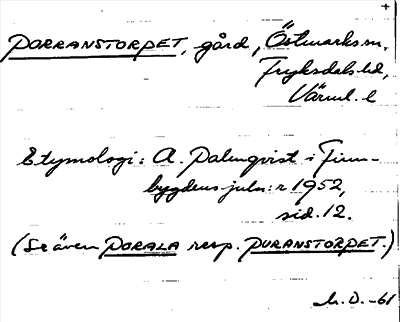 +
PORRANSTORPET, gård, Östmarks sn,
Fryksdals hd,
Värml. l
Etymologi: A. Palmqvist i Finn-
bygdens julnr 1952,
sid. 12.
(Se även PORALA resp. PURANSTORPET.)
M. O. -61